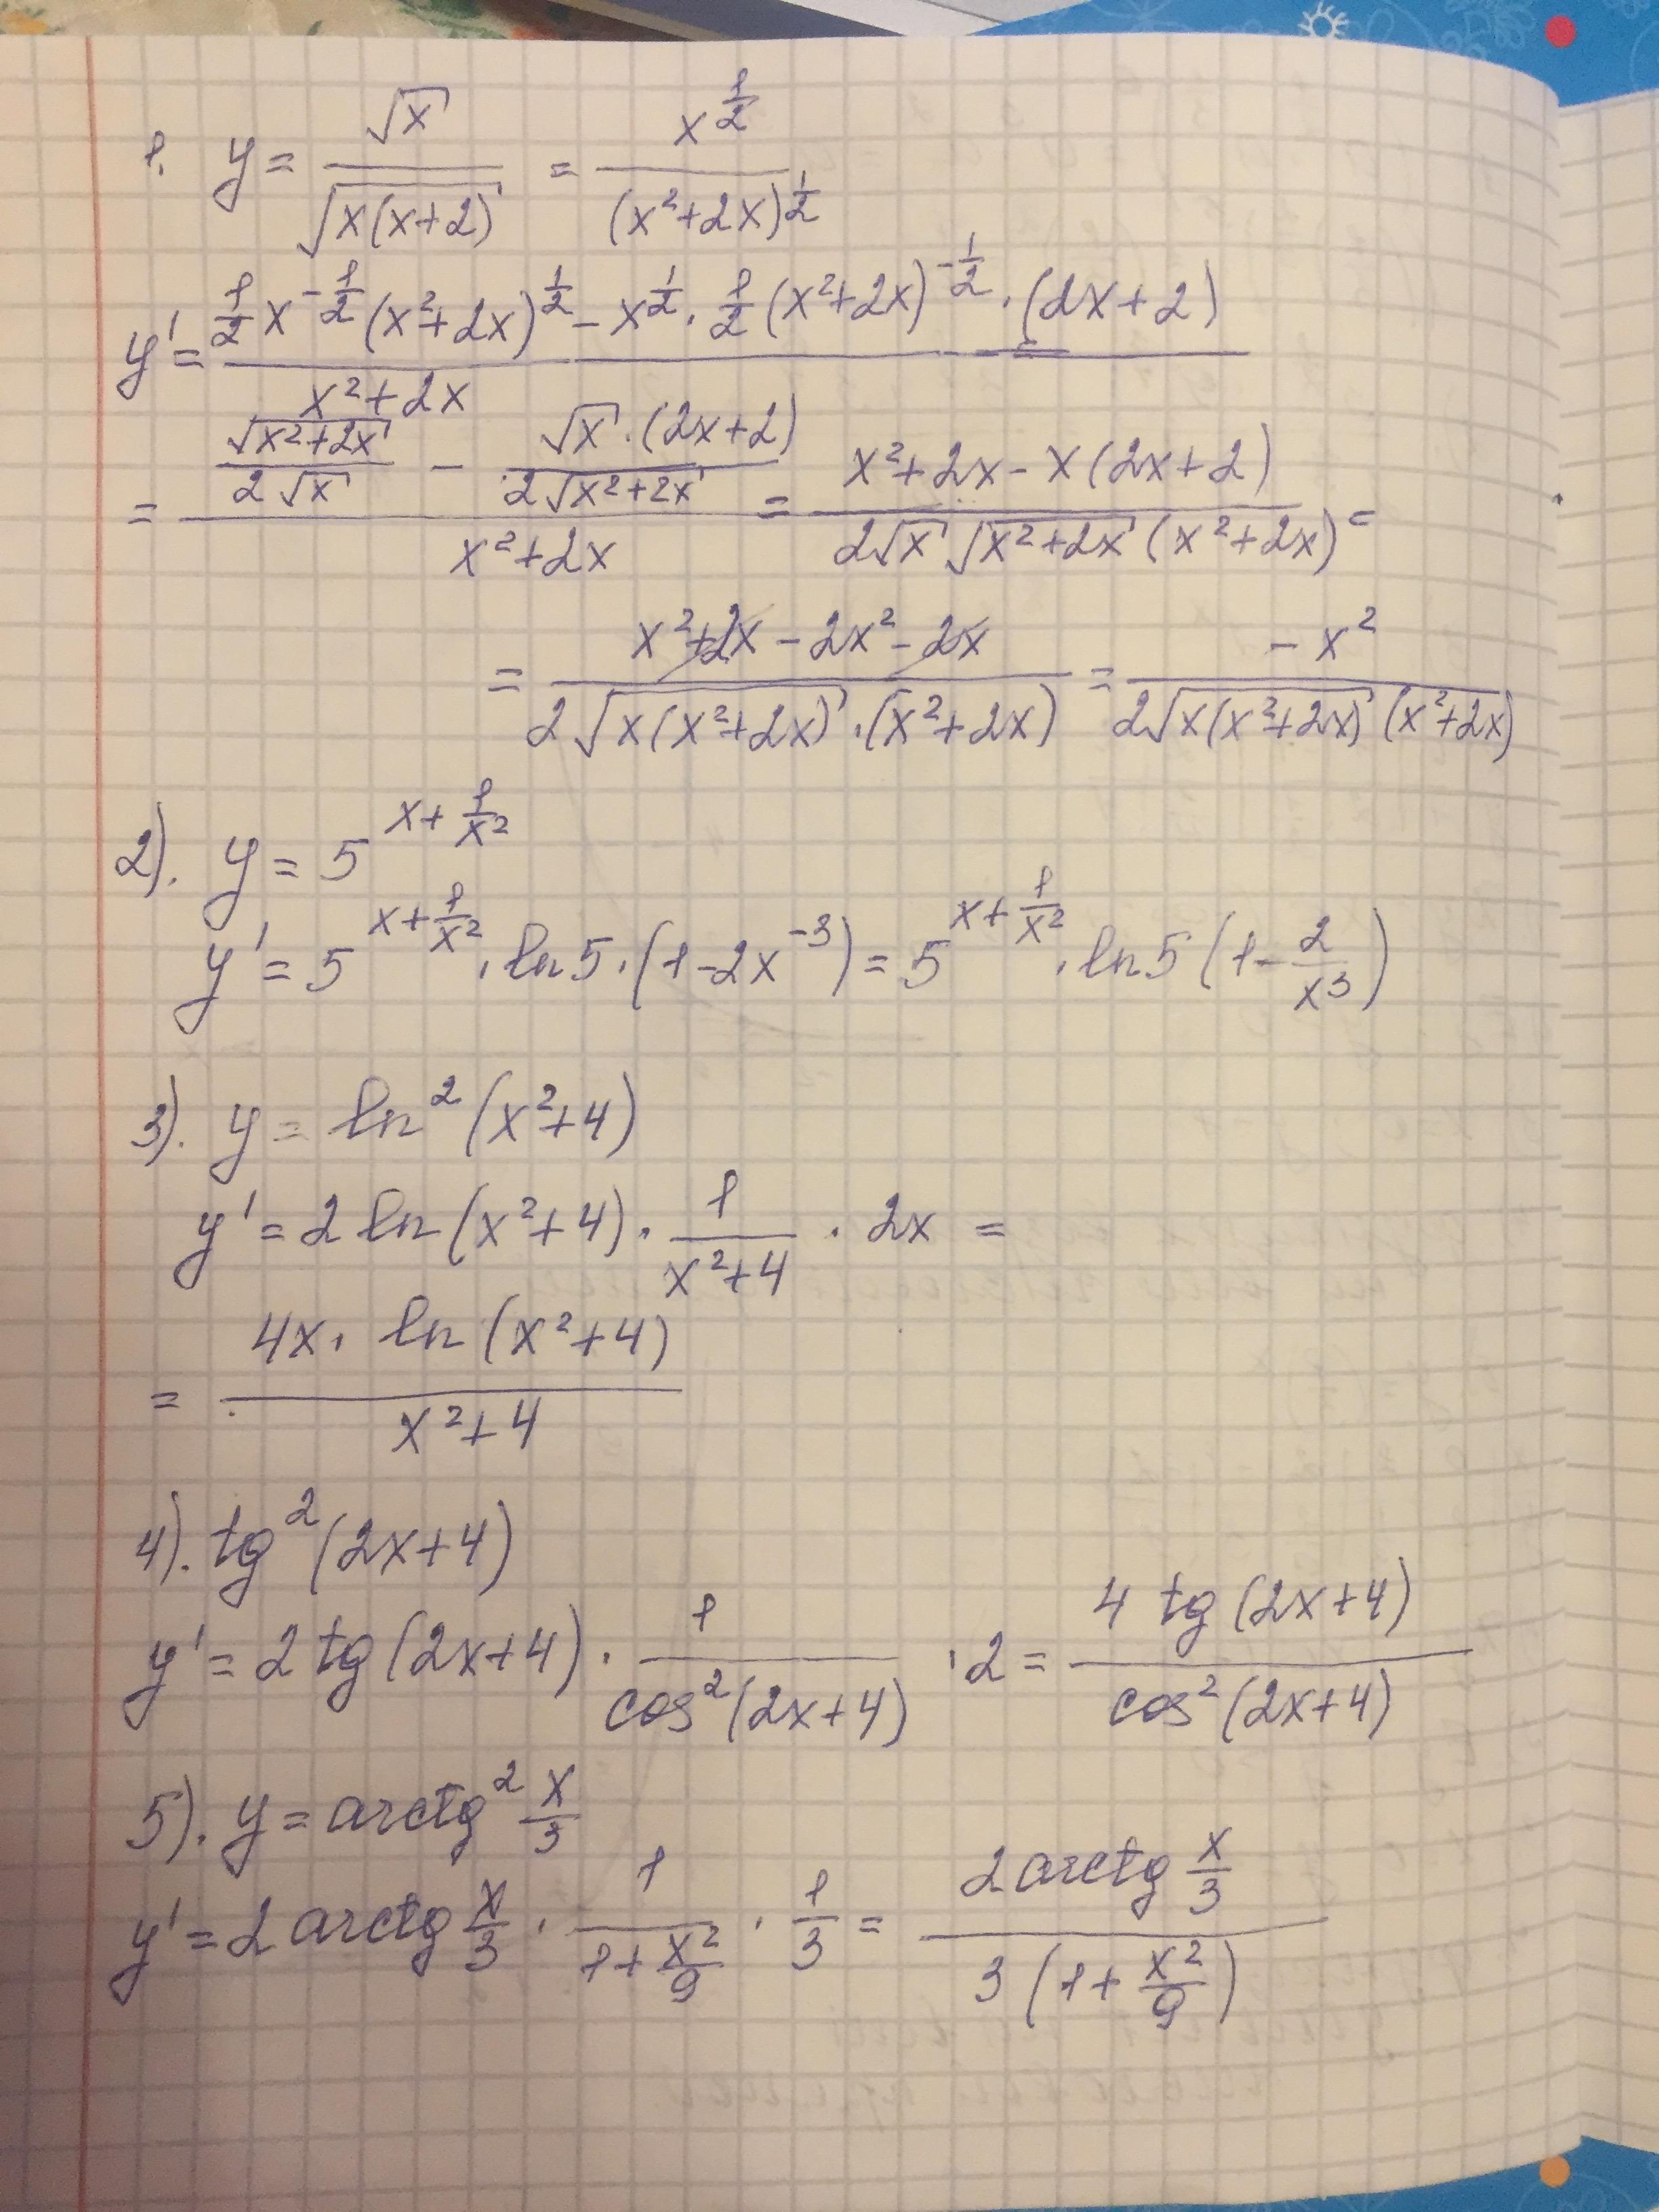 1. y = √x / √(x(x+2)) = x^(1/2) / (x²+2x)^(1/2)
y' = (1/2 x^(-1/2) (x²+2x)^(1/2) - x^(1/2) · 1/2 (x²+2x)^(-1/2) · (2x+2)) / (x²+2x) =
= (√(x²+2x) / (2√x) - √x · (2x+2) / (2√(x²+2x))) / (x²+2x) = (x²+2x - x(2x+2)) / (2√x √(x²+2x) (x²+2x)) =
= (x²+2x - 2x² - 2x) / (2√(x(x²+2x)) · (x²+2x)) = -x² / (2√(x(x²+2x)) (x²+2x))
2). y = 5^(x + 1/x²)
y' = 5^(x + 1/x²) · ln5 · (1-2x^(-3)) = 5^(x + 1/x²) · ln5 (1 - 2/x³)
3). y = ln²(x²+4)
y' = 2 ln(x²+4) · 1/(x²+4) · 2x =
= 4x · ln(x²+4) / (x²+4)
4). tg²(2x+4)
y' = 2 tg(2x+4) · 1/cos²(2x+4) · 2 = 4 tg(2x+4) / cos²(2x+4)
5). y = arctg² x/3
y' = 2 arctg x/3 · 1/(1 + x²/9) · 1/3 = 2 arctg x/3 / (3(1 + x²/9))